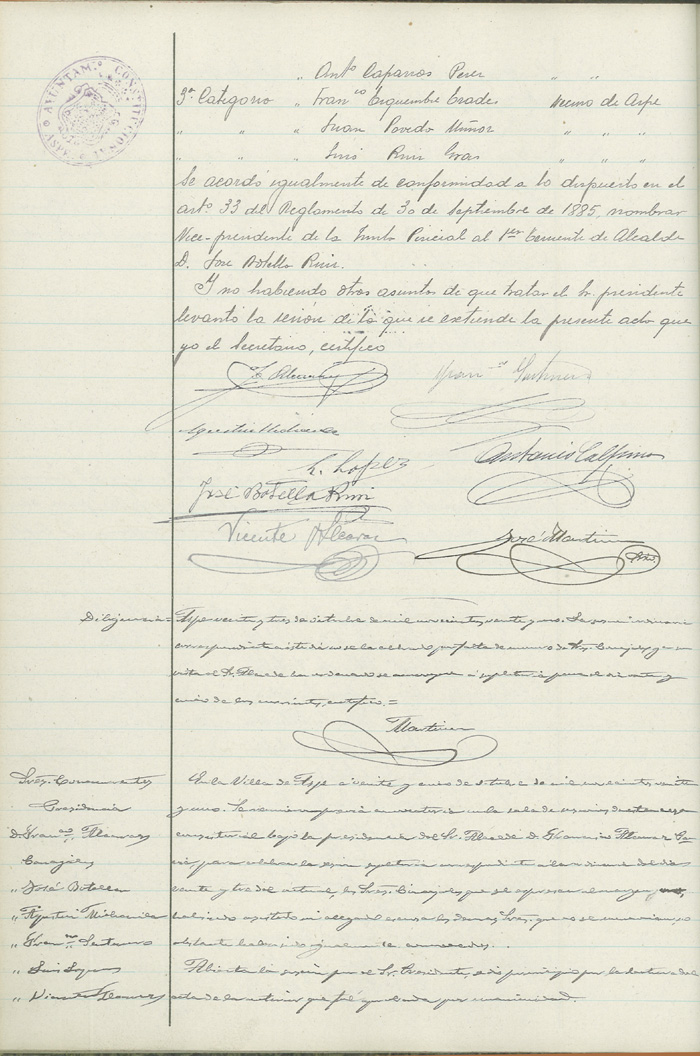 AYUNTAM.º CONSTITUCIONAL
ASPE
" Ant.º Caparros Perez " "
3ª Categoria " Fran.co Erquembre Erades Vecino de Aspe
" " " Juan Pavedo Muñoz " " "
" " " Luis Ruiz Gras " " "
Se acordó igualmente de conformidad a lo dispuesto en el
artº 33 del Reglamento de 30 de Septiembre de 1885, nombrar
Vice-presidente de la Junta Pericial al 1er teniente de Alcalde
D. José Botella Ruiz.
Y no habiendo otros asuntos de que tratar el Sr. presidente
levantó la sesión de la que se extiende la presente acta que
yo el Secretario, certifico
F. Alcaraz Fran.co Santana
Agustin Mira
L. Lopez Antonio
José Botella Ruiz
Vicente Alcaraz José Martinez
Diligencia = Aspe veinte y tres de octubre de mil novecientos veinte y uno. La sesion ordinaria
correspondiente a este dia no se ha celebrado por falta de numero de Sres. Concejales, y en
vista el Sr. Alcalde ha ordenado se convoque a supletoria para el veinte y
cinco de los corrientes, certifico. =
Martinez
Sres. Concurrentes
Presidencia
D. Fran.co Alcaraz
Concejales
" José Botella
" Agustin
" Fran.co Santana
" Luis Lopez
" Vicente Alcaraz
En la Villa de Aspe a veinte y cinco de octubre de mil novecientos veinte
y uno. Se reunieron en la sala de sesiones de
consistorial bajo la presidencia del Sr. Alcalde D. Francisco Alcaraz
para celebrar la sesion supletoria correspondiente a la ordinaria del dia
veinte y tres del actual, los Sres. Concejales que se expresan al margen
no habiendo asistido ni alegado excusa los demas Sres. que no se mencionan, no
obstante haber sido igualmente convocados.
Abierta la sesion por el Sr. Presidente, se dio principio por la lectura del
acta de la anterior que fué aprobada por unanimidad.